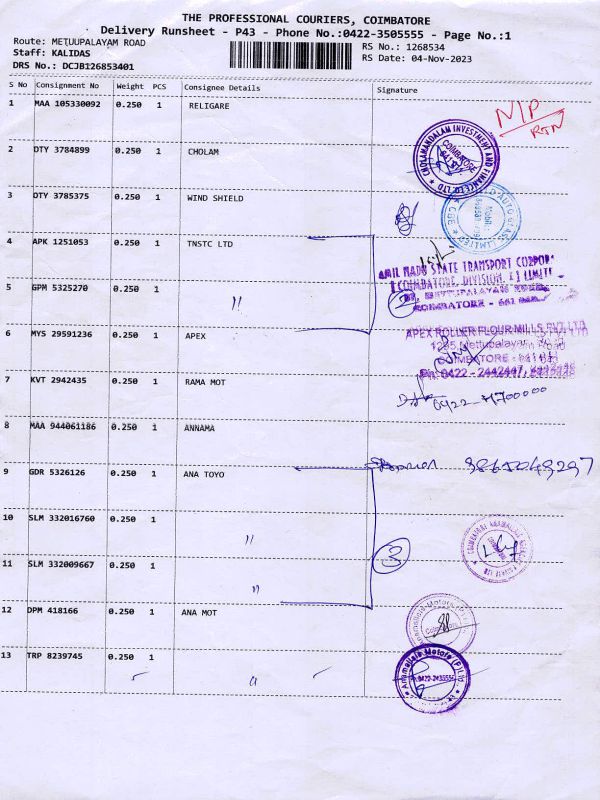 THE PROFESSIONAL COURIERS, COIMBATORE
Delivery Runsheet - P43 - Phone No.:0422-3505555 - Page No.:1
Route: METUUPALAYAM ROAD
Staff: KALIDAS
DRS No.: DCJB126853401
RS No.: 1268534
RS Date: 04-Nov-2023
S No Consignment No Weight PCS Consignee Details Signature
1 MAA 105330092 0.250 1 RELIGARE N/P RTN
2 DTY 3784899 0.250 1 CHOLAM
CHOLAMANDALAM INVESTMENT AND FINANCE CO LTD
COIMBATORE
3 DTY 3785375 0.250 1 WIND SHIELD
4 APK 1251053 0.250 1 TNSTC LTD
TAMIL NADU STATE TRANSPORT CORPOR
COIMBATORE, DIVISION,
5 GPM 5325270 0.250 1 " 2
COIMBATORE -
6 MYS 29591236 0.250 1 APEX
APEX ROLLER FLOUR MILLS PVT LTD
COIMBATORE
Ph: 0422 - 2442447,
7 KVT 2942435 0.250 1 RAMA MOT
8 MAA 944061186 0.250 1 ANNAMA
9 GDR 5326126 0.250 1 ANA TOYO
10 SLM 332016760 0.250 1 "
11 SLM 332009667 0.250 1 " 3
12 DPM 418166 0.250 1 ANA MOT
13 TRP 8239745 0.250 1 "
Anamallais Motors (P) Ltd